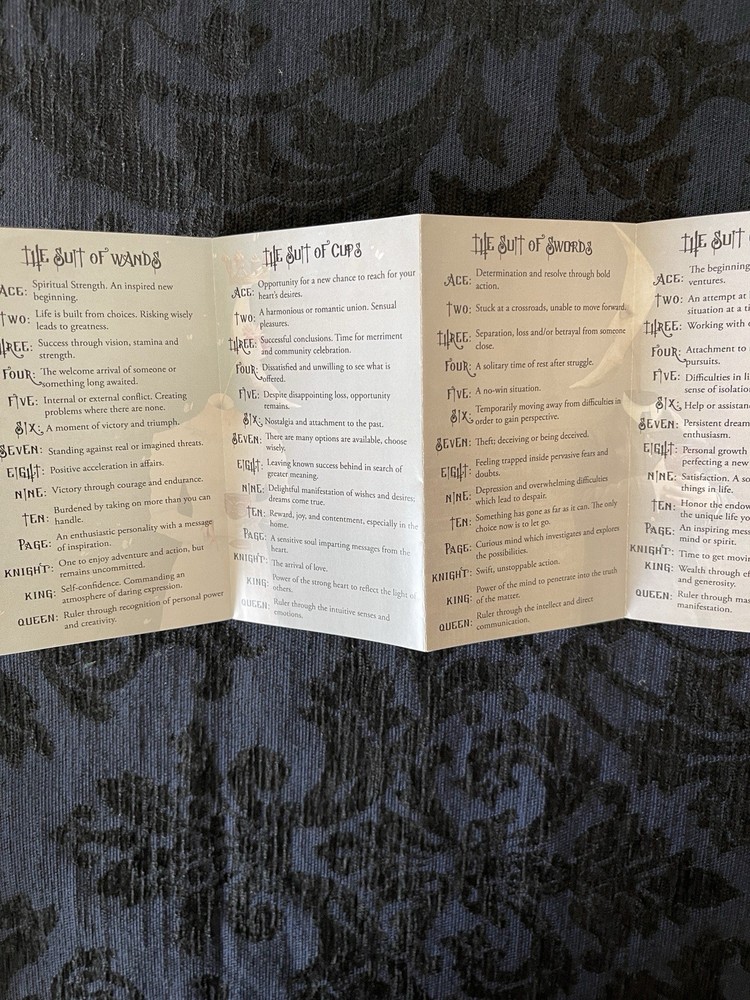 THE SUIT OF WANDS
ACE: Spiritual Strength. An inspired new
beginning.
TWO: Life is built from choices. Risking wisely
leads to greatness.
THREE: Success through vision, stamina and
strength.
FOUR: The welcome arrival of someone or
something long awaited.
FIVE: Internal or external conflict. Creating
problems where there are none.
SIX: A moment of victory and triumph.
SEVEN: Standing against real or imagined threats.
EIGHT: Positive acceleration in affairs.
NINE: Victory through courage and endurance.
TEN: Burdened by taking on more than you can
handle.
PAGE: An enthusiastic personality with a message
of inspiration.
KNIGHT: One to enjoy adventure and action, but
remains uncommitted.
KING: Self-confidence. Commanding an
atmosphere of daring expression.
QUEEN: Ruler through recognition of personal power
and creativity.
THE SUIT OF CUPS
ACE: Opportunity for a new chance to reach for your
heart's desires.
TWO: A harmonious or romantic union. Sensual
pleasures.
THREE: Successful conclusions. Time for merriment
and community celebration.
FOUR: Dissatisfied and unwilling to see what is
offered.
FIVE: Despite disappointing loss, opportunity
remains.
SIX: Nostalgia and attachment to the past.
SEVEN: There are many options are available, choose
wisely.
EIGHT: Leaving known success behind in search of
greater meaning.
NINE: Delightful manifestation of wishes and desires;
dreams come true.
TEN: Reward, joy, and contentment, especially in the
home.
PAGE: A sensitive soul imparting messages from the
heart.
KNIGHT: The arrival of love.
KING: Power of the strong heart to reflect the light of
others.
QUEEN: Ruler through the intuitive senses and
emotions.
THE SUIT OF SWORDS
ACE: Determination and resolve through bold
action.
TWO: Stuck at a crossroads, unable to move forward.
THREE: Separation, loss and/or betrayal from someone
close.
FOUR: A solitary time of rest after struggle.
FIVE: A no-win situation.
SIX: Temporarily moving away from difficulties in
order to gain perspective.
SEVEN: Theft; deceiving or being deceived.
EIGHT: Feeling trapped inside pervasive fears and
doubts.
NINE: Depression and overwhelming difficulties
which lead to despair.
TEN: Something has gone as far as it can. The only
choice now is to let go.
PAGE: Curious mind which investigates and explores
the possibilities.
KNIGHT: Swift, unstoppable action.
KING: Power of the mind to penetrate into the truth
of the matter.
QUEEN: Ruler through the intellect and direct
communication.
THE SUIT OF
ACE: The beginning
ventures.
TWO: An attempt at
situation at a
THREE: Working with
FOUR: Attachment to
pursuits.
FIVE: Difficulties in
sense of
SIX: Help or
SEVEN: Persistent
enthusiasm.
EIGHT: Personal growth
perfecting a new
NINE: Satisfaction. A
things in life.
TEN: Honor the
the unique life
PAGE: An inspiring
mind or spirit.
KNIGHT: Time to get
KING: Wealth through
and generosity.
QUEEN: Ruler through
manifestation.